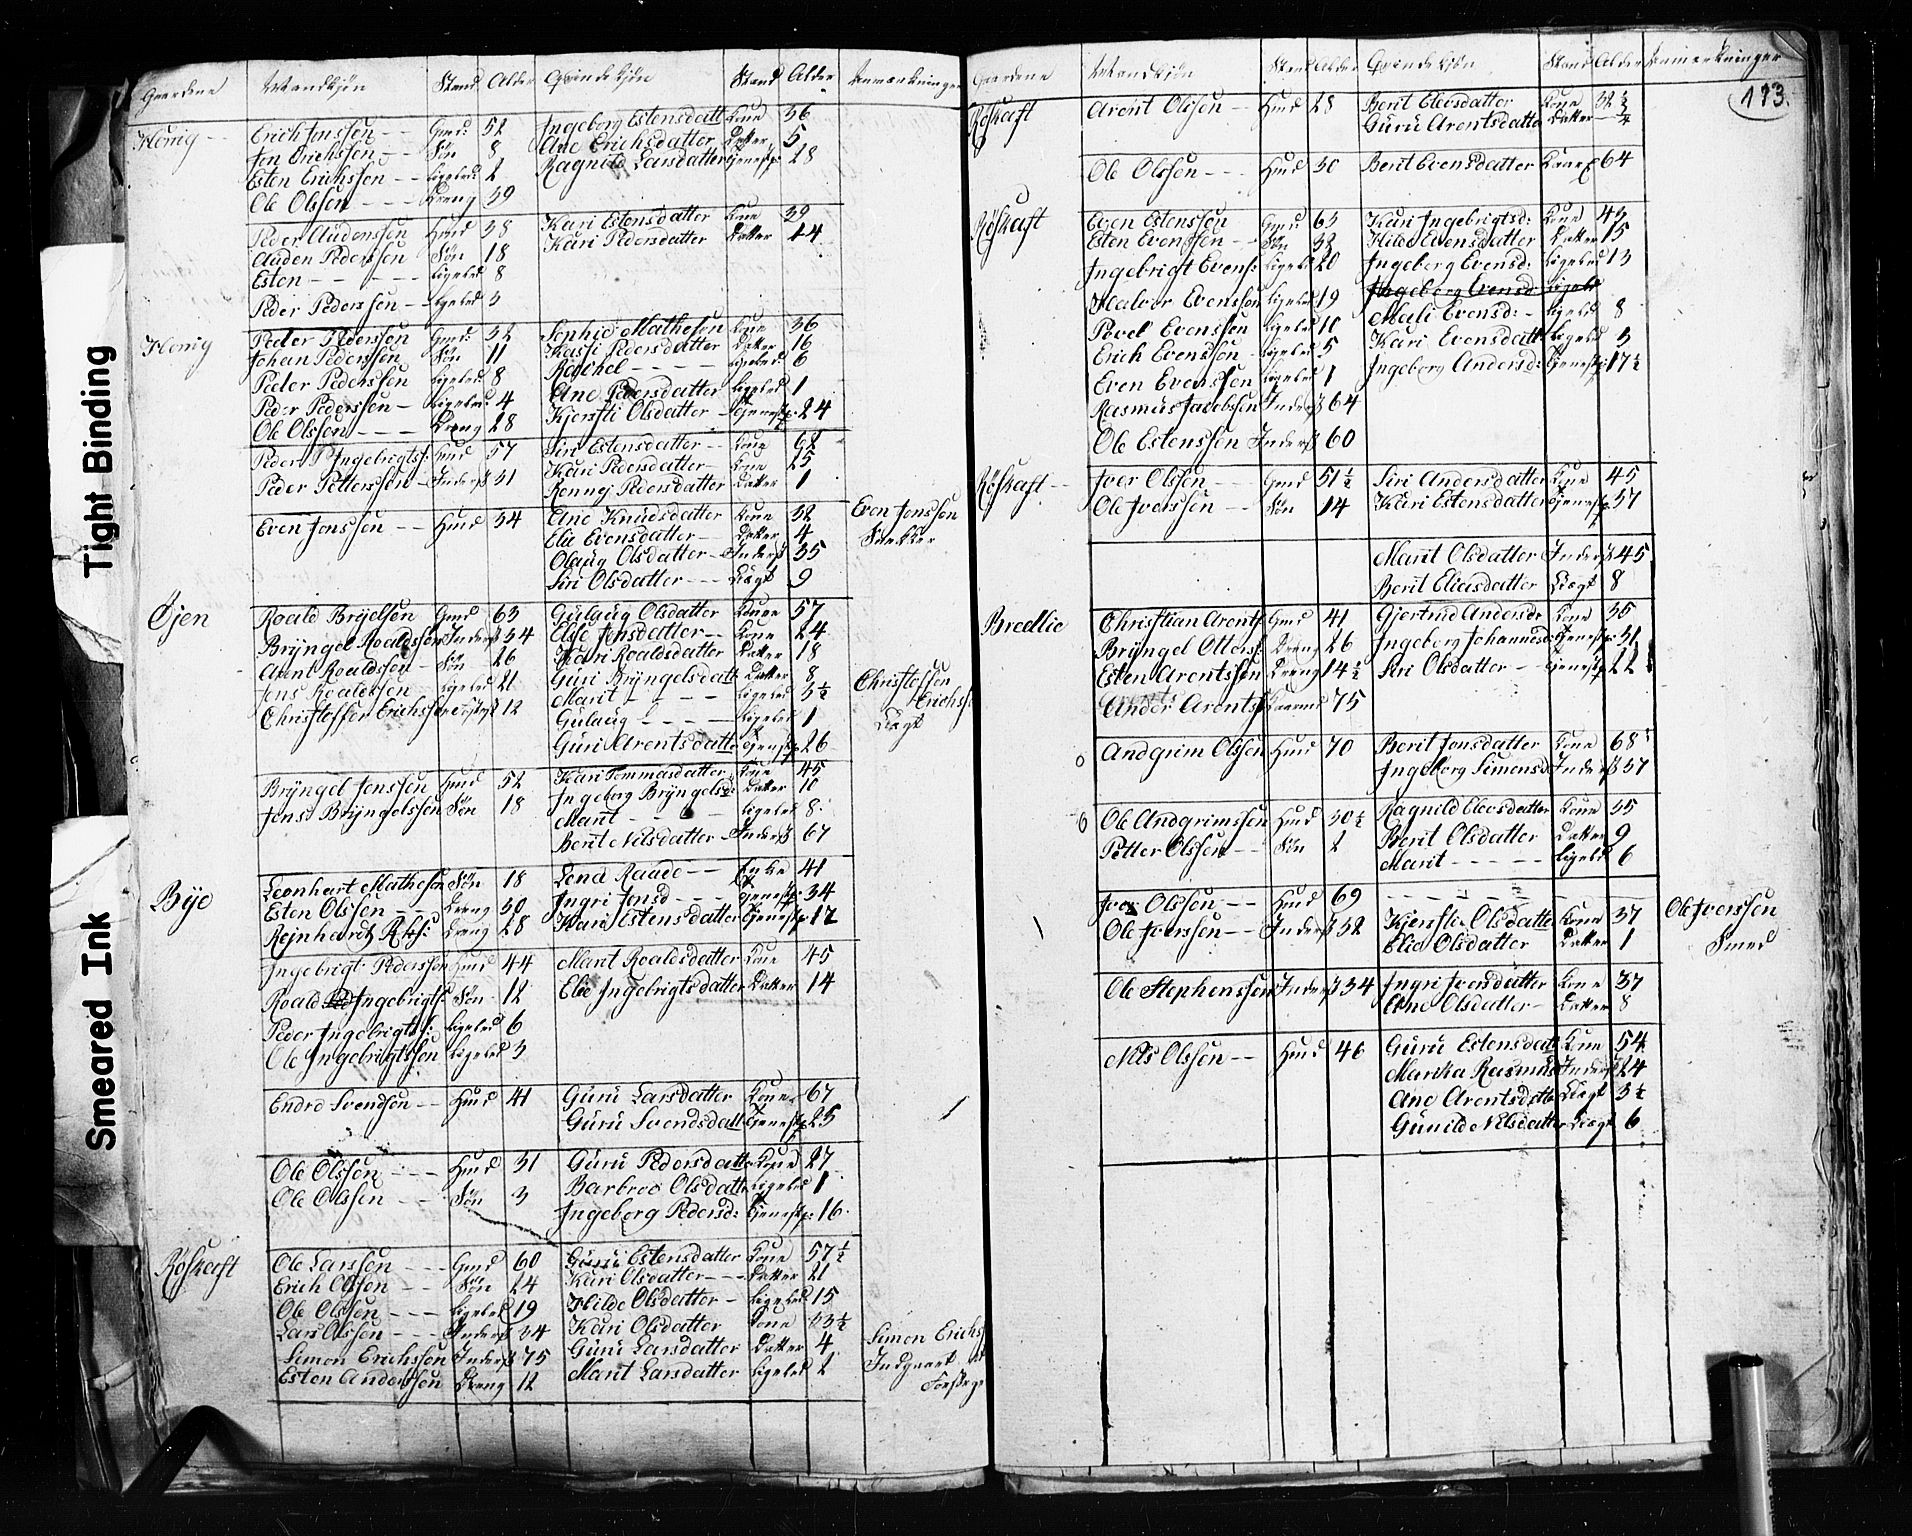 Tight Binding
Smeared Ink
Gaardene Mandkiön Stand Alder Qvindekiön Stand Alder Anmærkninger
Honig Erich Jnssen Gmd: 52 Ingeborg Estensdatt Kone 36
Jon Erichssen Søn 8 Ane Erichsdatter Datter 5
Esten Erichssen ligeled: 2 Ragnild Larsdatter tjenestp: 28
Ole Olssen Dreng 39
Peder Audenssen Hmd 38 Kari Estensdatter Kone 39
Auden Pederssen Søn 18 Kari Pedersdatter Datter 14
Esten ligeled 8
Peder Pederssen ligeled 3
Honig Peder Pederssen Gmd: 32 Sophie Mathesen Kone 36
Johan Pederssen Søn 11 Kassi Pedersdatter Datter 16
Peder Pederssen ligeled: 8 Rachel ligeled: 6
Peder Pederssen ligeled: 4 Ane Pedersdatter ligeled 1
Ole Olssen Dreng 28 Kjersti Olsdatter tjenestp: 24
Peder P Ingebrigtss: Hmd 57 Siri Estensdatter Kone 62
Peder Pettersen Inderst 31 Kari Pedersdatter Kone 25
Rønnej Pedersdatter Datter 1
Even Jonssen Hmd 34 Ane Knudsdatter Kone 32 Even Jonssen
Elie Evensdatter Datter 4 Snekker
Olaug Olsdatter Inderst 35
Siri Olsdatter Lægt 9
Øjen Roald Brÿelsen Gmd 63 Gulaug Olsdatter Kone 57
Brÿngel Roaldssen Inderst 34 Else Jonsdatter Kone 24
Arent Roaldssen Søn 26 Kari Roaldsdatter Datter 18
Jens Roaldssen ligeled 21 Guri Brÿngelsdatt Datter 8 Christoffen
Christoffer Erichssen 12 Marit ligeled 3½ Erichss
Gulaug ligeled 1 Lægt
Guri Arentsdatter tjenestp: 26
Brÿngel Jenssen Hmd 52 Kari Tommasdatter Kone 45
Jens Brÿngelssen Søn 18 Ingeborg Brÿngelsd: Datter 10
Marit ligeled 8
Berit Nilsdatter Inderst 67
Bÿe Leonhart Mathesen Søn 18 Lena Raade Enke 41
Esten Olssen Dreng 30 Ingri Jonsd tjenestp: 34
Rejnhardt Dreng 28 Kari Estensdatter tjenestp: 17
Ingebrigt Pederssen Hmd 44 Marit Roaldsdatter Kone 45
Roald Ingebrigtss: Søn 12 Elie Ingebrigtsdatter Datter 14
Peder Ingebrigtss: ligeled 6
Ole Ingebrigtssen ligeled 3
Endre Svendsen Hmd 41 Guru Larsdatter Kone 67
Guru Svendsdatt tjenestp: 25
Ole Olssen Hmd 31 Guru Pedersdatter Kone 27
Ole Olssen Søn 3 Barbroe Olsdatt ligeled 1
Ingeborg Pedersd: tjenestp: 16
Røskaft Ole Larssen Gmd 60 Guru Estensdatter Kone 57½
Erich Olssen Søn 24 Kari Olsdatter Datter 21
Ole Olssen ligeled 19 Hilde Olsdatter ligeled 15
Lars Olssen Inderst 34 Kari Olsdatter Kone 33½
Simon Erichssen Inderst 75 Guru Larsdatter Datter 4 Simon Erichs
Esten Anderssen Dreng 12 Marit Larsdatter ligeled 2 Indgaaet
Gaardene Mandkiön Stand Alder Qvindekiön Stand Alder Anmerkninger
173.
Røskaft Arent Olssen Hmd 28 Berit Elevsdatter Kone 32½
Guru Arentsdatter Datter
Ole Olssen Hmd 30 Berit Evensdatter Kone 64
Røskaft Even Estenssen Gmd 63 Kari Ingebrigtsd: Kone 43
Esten Evenssen Søn 32 Hilde Evensdatter Datter 15
Ingebrigt Evens: ligeled 20 Ingeborg Evensd: ligeled 13
Halvor Evenssen ligeled 19 Ingeborg Evensd ligeled
Povel Evenssen ligeled 10 Mali Evensd: ligeled 8
Erich Evenssen ligeled 5 Kari Evensdatt ligeled 3
Even Evenssen ligeled 1 Ingeborg Andersd: tjenestp: 17½
Rasmus Jacobssen Inderst 64
Ole Estenssen Inderst 60
Røskaft Iver Olssen Gmd 51½ Siri Andersdatter Kone 45
Ole Iverssen Søn 14 Kari Estensdatter tjenestp: 57
Marit Olsdatter Inderst 45
Berit Eliasdatter Lægt 8
Bredlie Christian Arents Gmd 41 Gjertrud Andersdr Kone 36
Brÿngel Otters: Dreng 26 Ingeborg Johannesd: tjenestp: 31
Esten Arentssen Dreng 14½ Siri Olsdatter tjenestp: 22
Ander Arents 75
o Andgrim Olssen Hmd 70 Berit Jonsdatter Kone 68
Ingeborg Simonsd Inderst 37
o Ole Andgrimssen Hmd 30½ Ragnild Elevsdatter Kone 35
Petter Olssen Søn 2 Berit Olsdatter Datter 9
Marit ligeled 6
Iver Olssen Hmd 69
Ole Iverssen Inderst 32 Kjersti Olsdatter Kone 37 Ole Iverssen
Elie Olsdatter Datter 1 Smed
Ole Stephenssen Inderst 34 Ingri Iversdatter Kone 37
Ane Olsdatter Datter 8
Nils Olssen Hmd 46 Guru Estensdatt Kone 54
Marika Rasmus Inderst 24
Ane Arentsdatter Lægt 3½
Gunild Nilsdatter Lægt 6